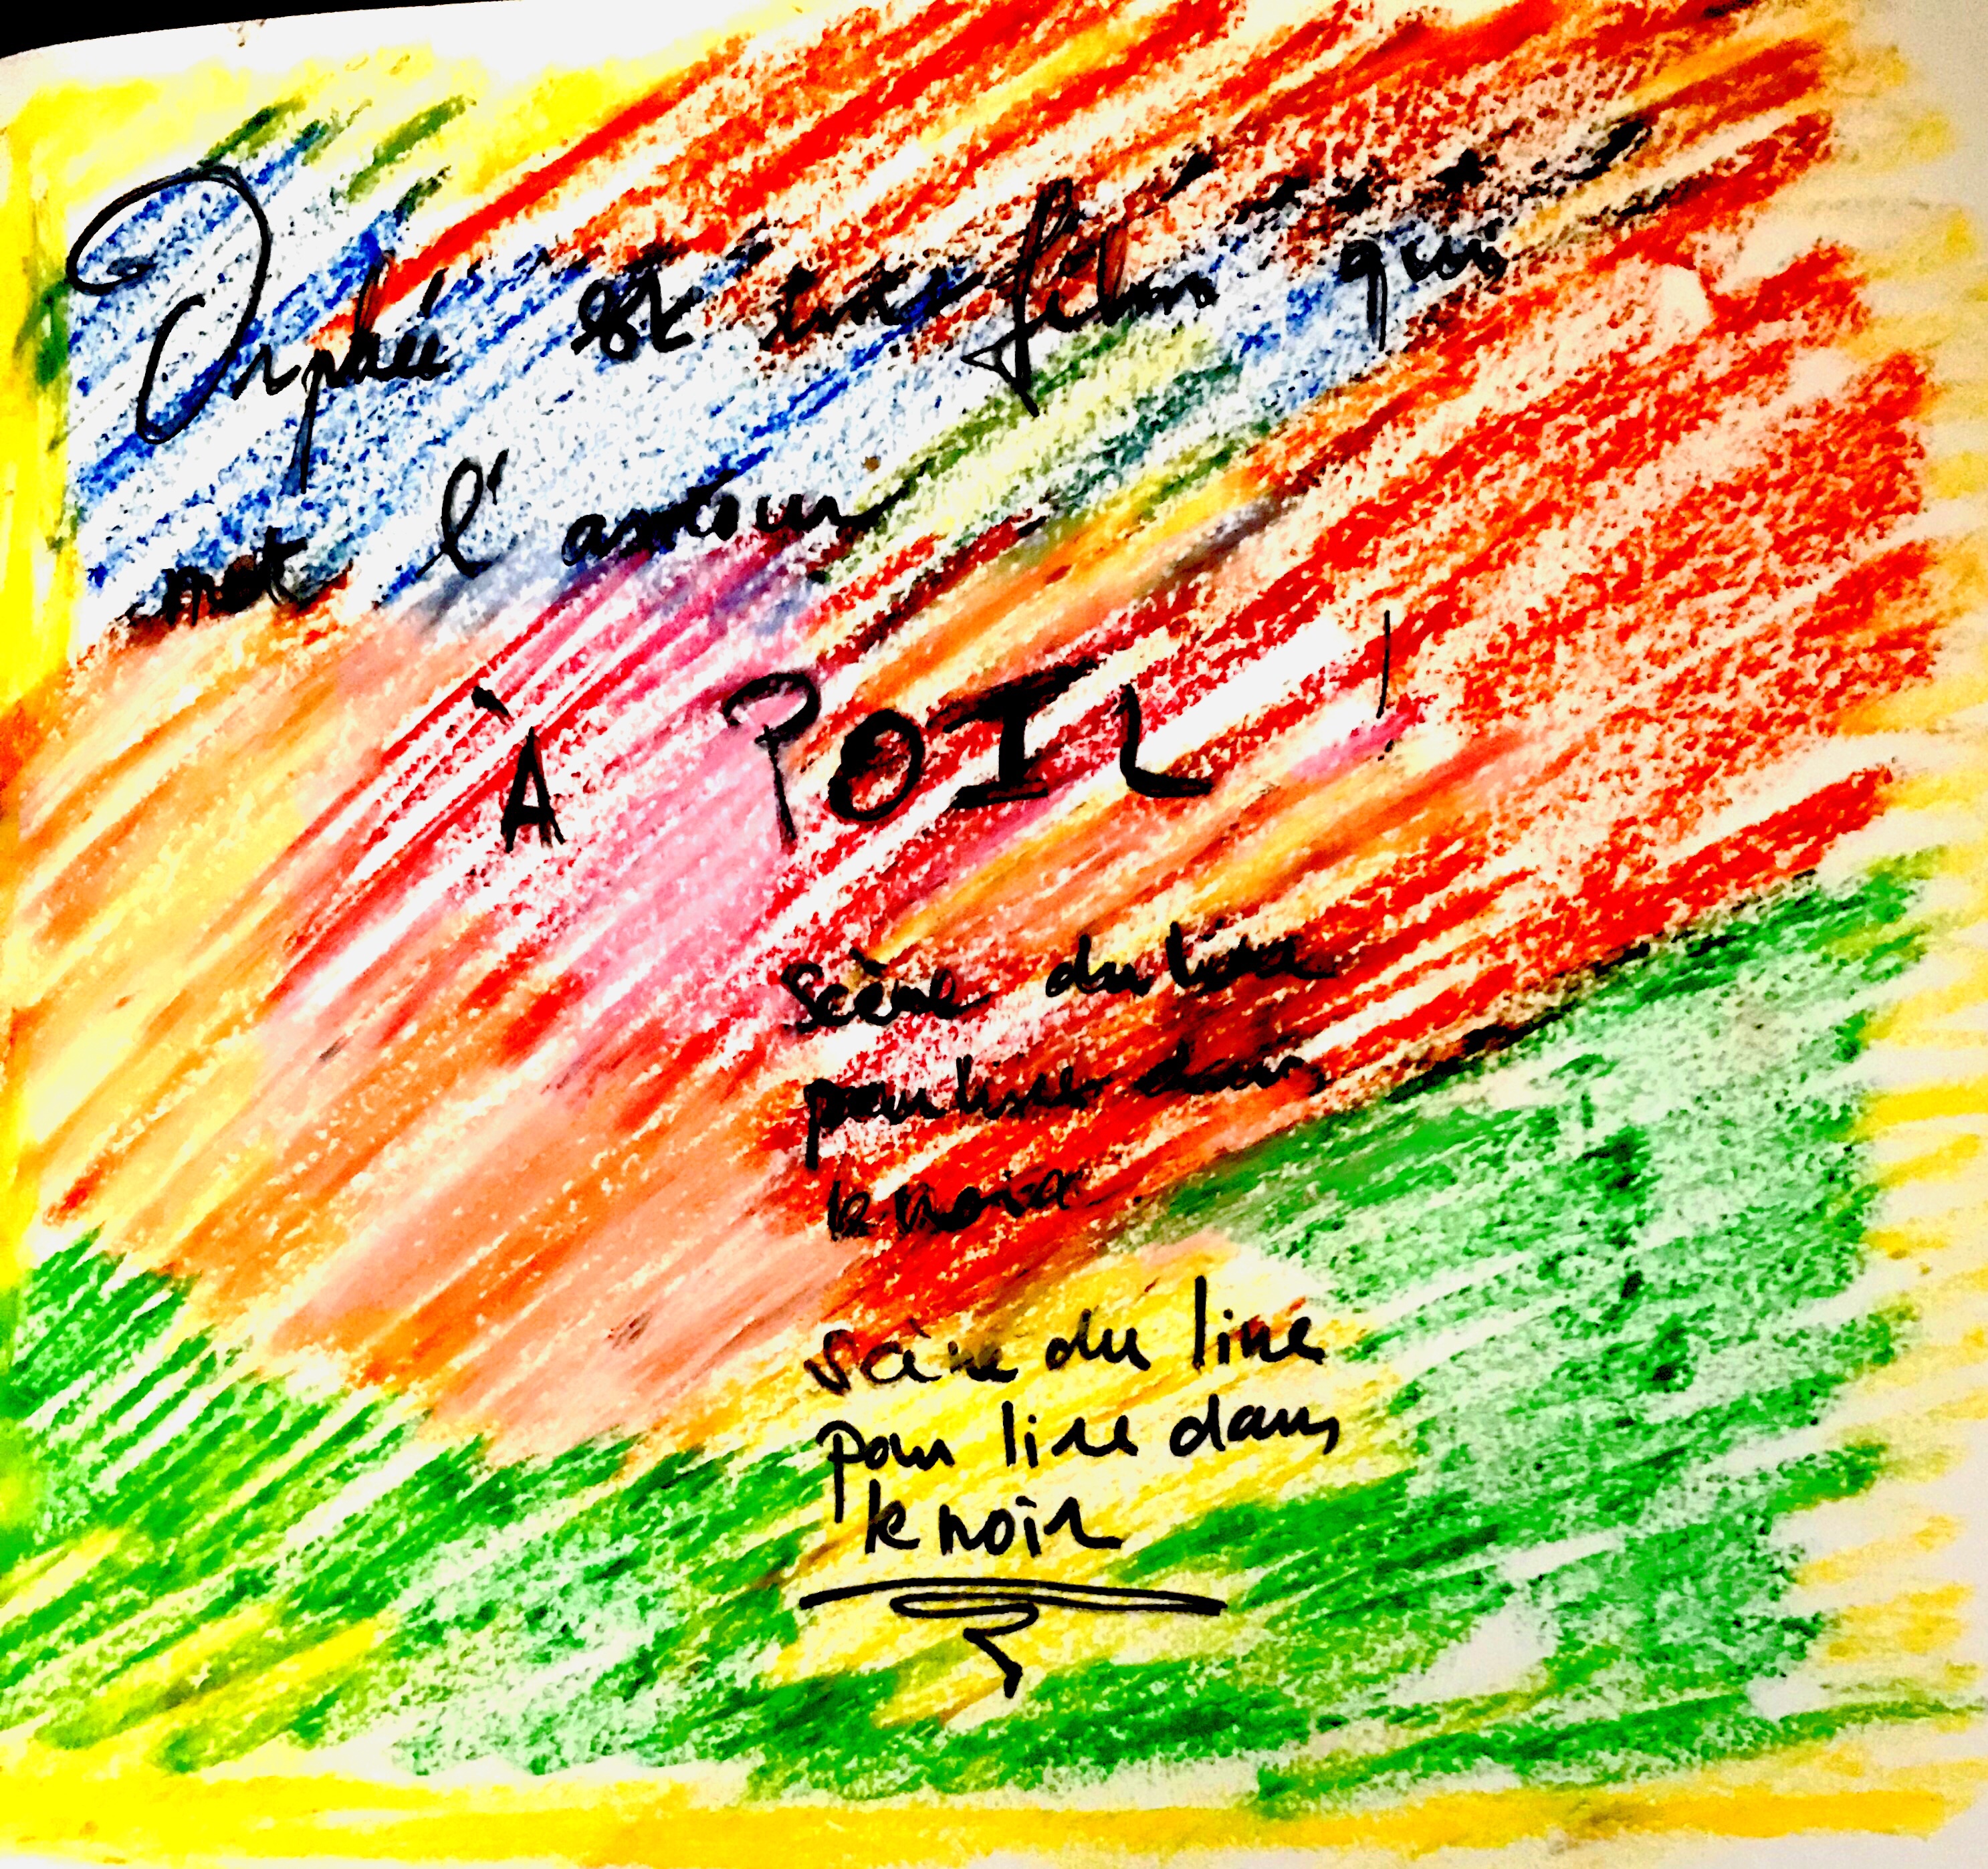 Orphée est un film qui
met l'amour
À POIL !
Scène du livre
pour lire dans
le noir
Scène du livre
pour lire dans
le noir